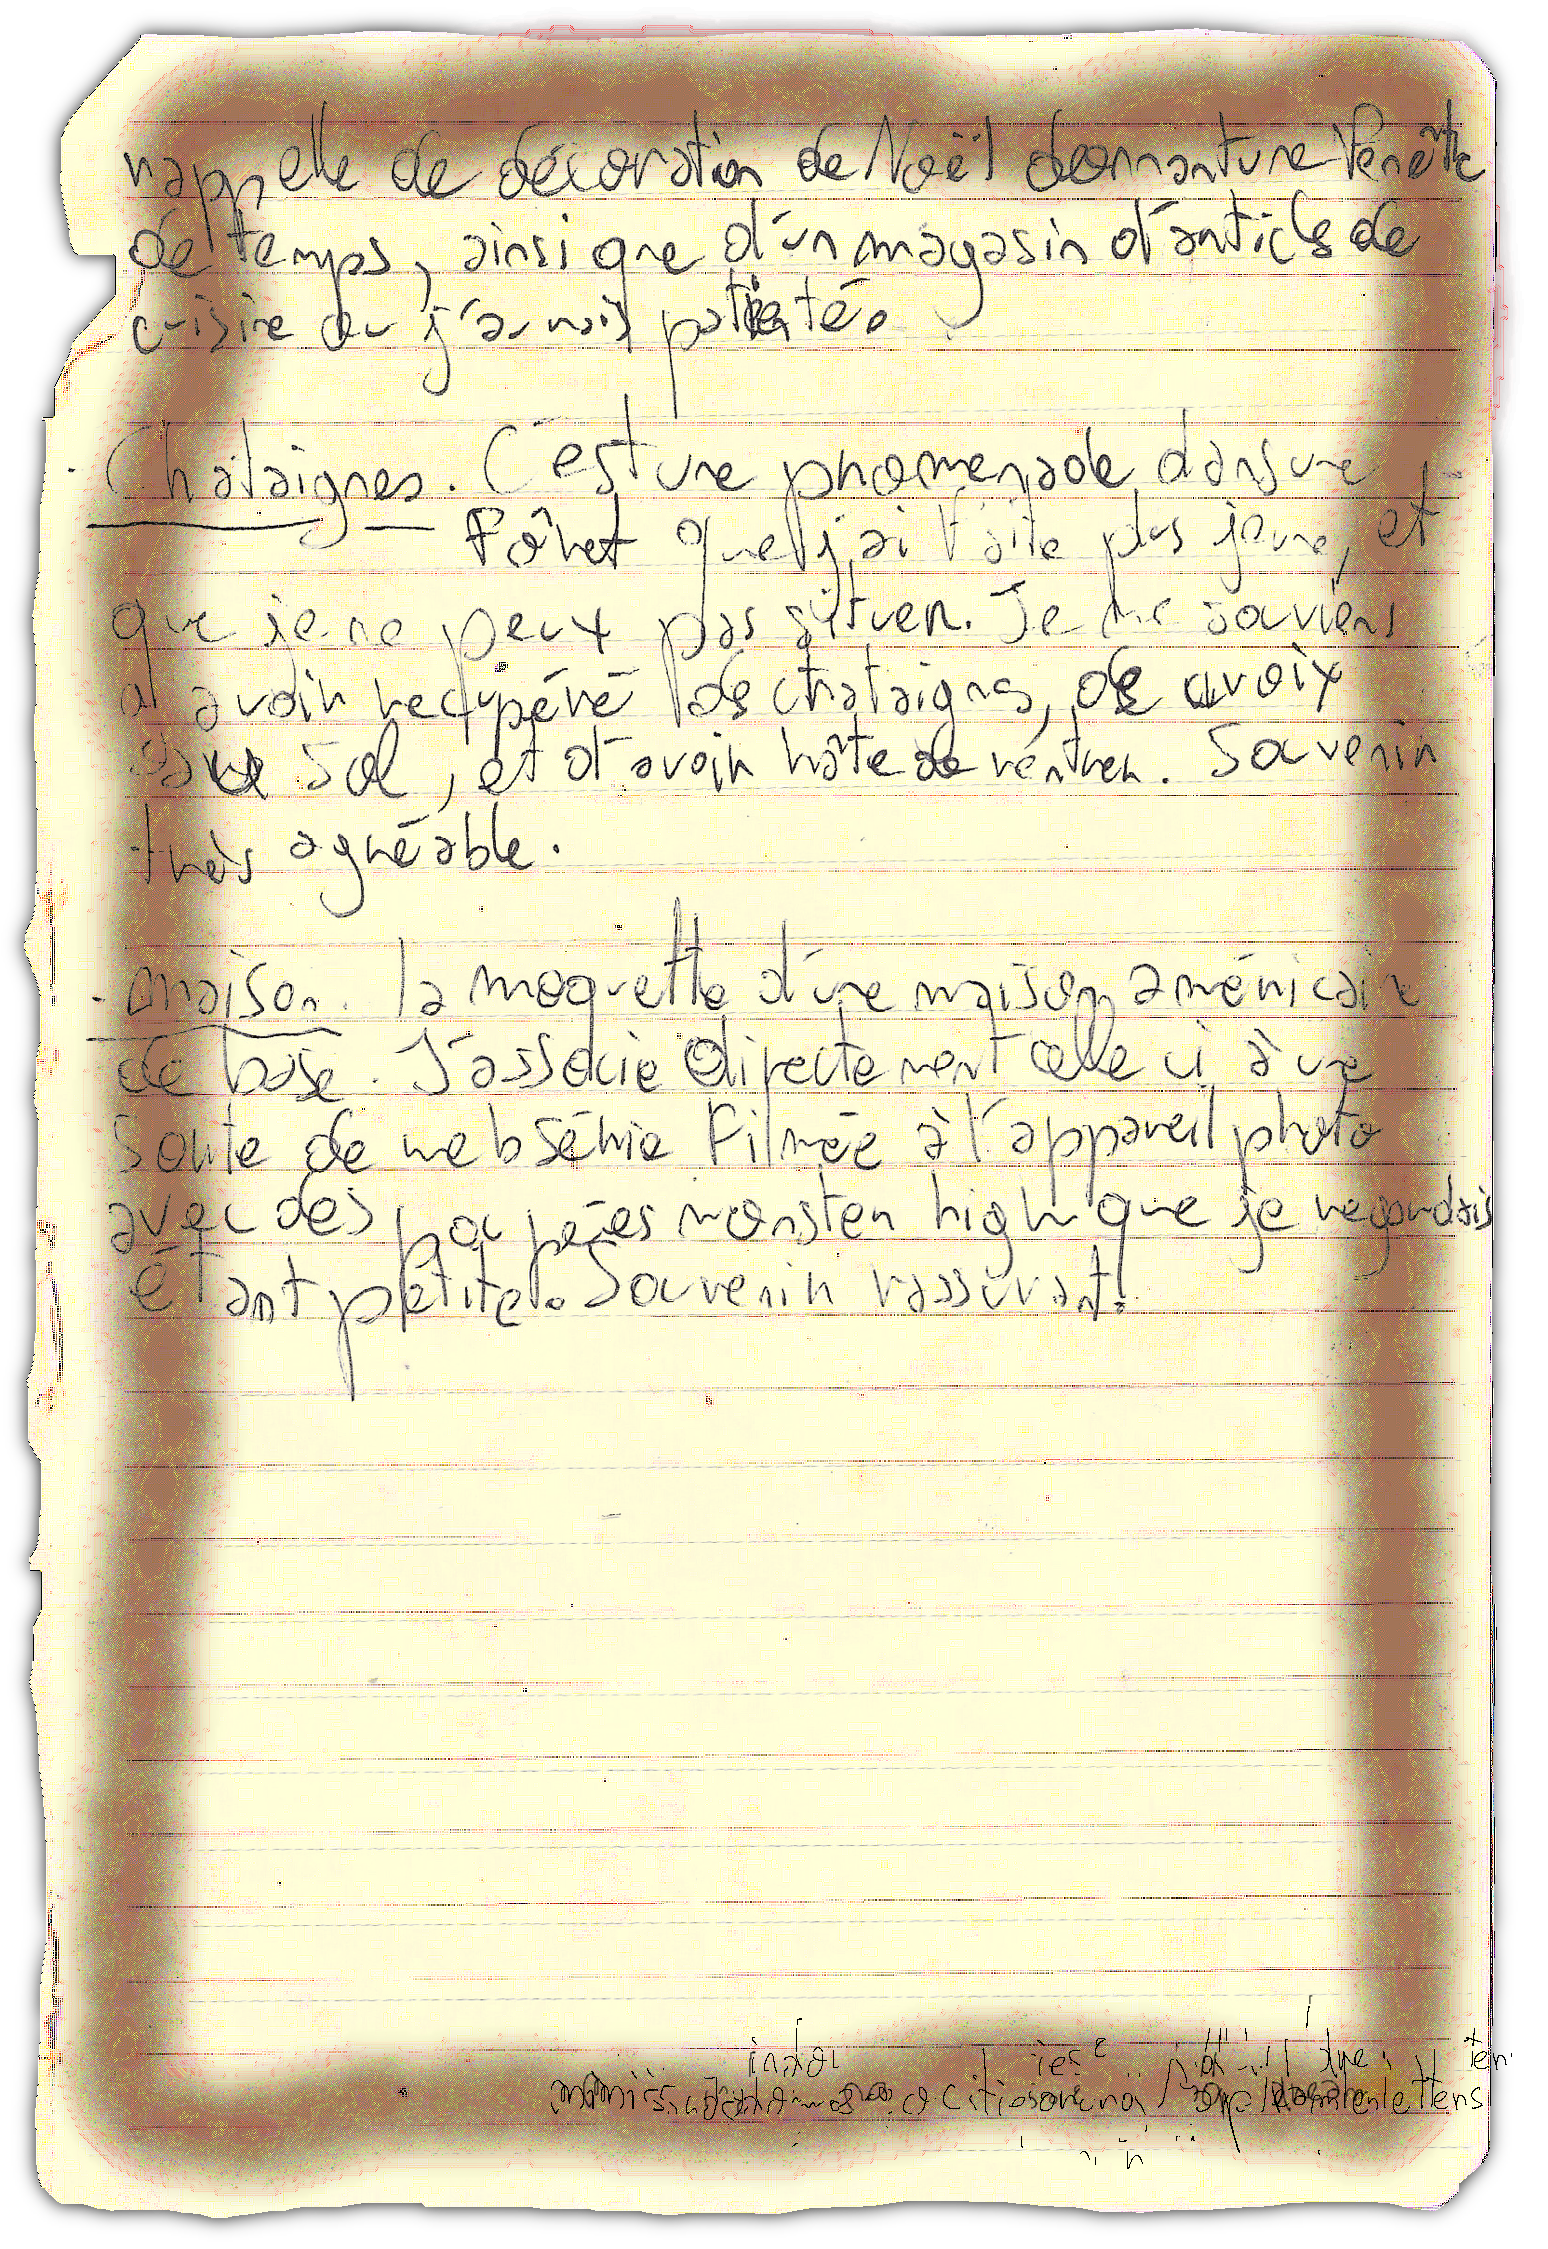 rappelle de décoration de Noël donnant une fenêtre
de temps, ainsi que d'un magasin d'articles de
cuisine ou j'aurais patienté.
· Châtaignes. C'est une promenade dans une
fôret que j'ai faite plus jeune, et
que je ne peux pas situer. Je me souviens
d'avoir recupéré des chataignes,
sol, et d'avoir hâte de rentrer. Souvenir
très agréable.
- maison. la moquette d'une maison américaine
de base. J'associe directement celle ci à une
sorte de websérie filmée à l'appareil photo
avec des poupées monster high que je regardais
étant petite. Souvenir rassurant.